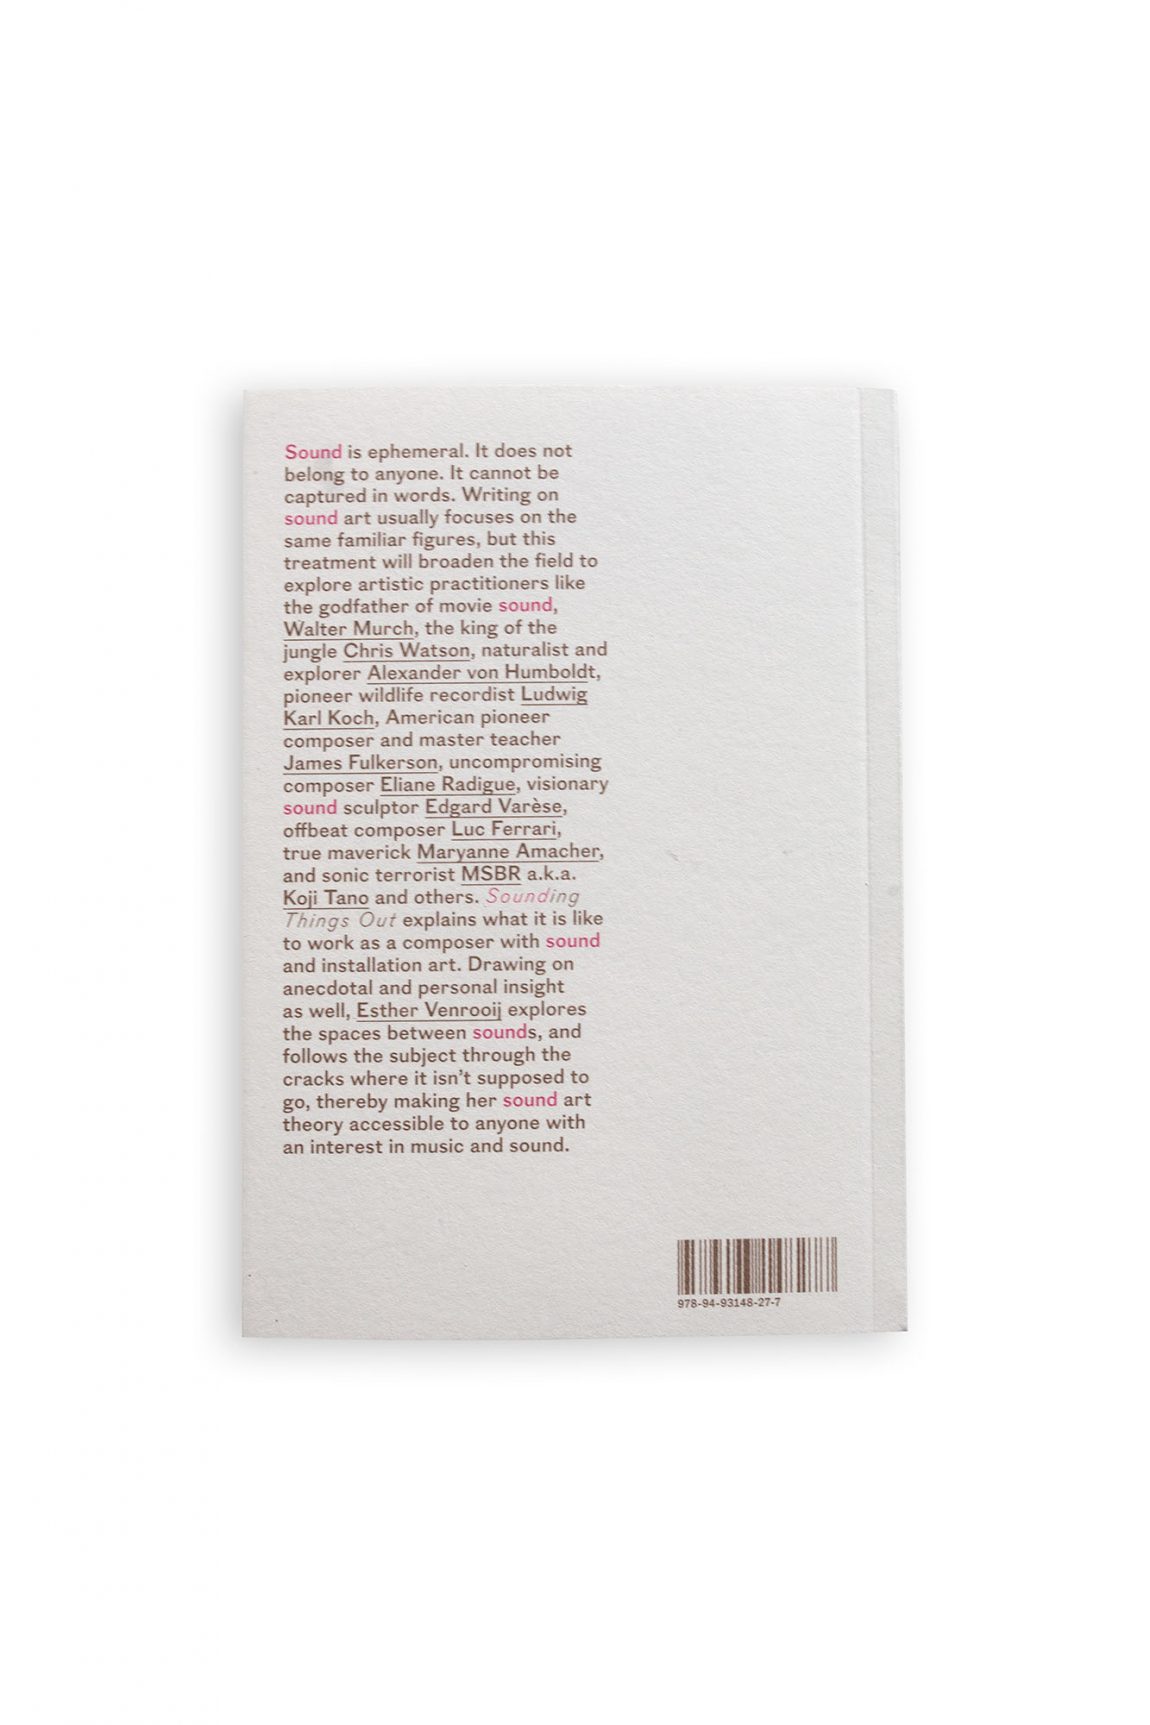 Sound is ephemeral. It does not
belong to anyone. It cannot be
captured in words. Writing on
sound art usually focuses on the
same familiar figures, but this
treatment will broaden the field to
explore artistic practitioners like
the godfather of movie sound,
Walter Murch, the king of the
jungle Chris Watson, naturalist and
explorer Alexander von Humboldt,
pioneer wildlife recordist Ludwig
Karl Koch, American pioneer
composer and master teacher
James Fulkerson, uncompromising
composer Eliane Radigue, visionary
sound sculptor Edgard Varèse,
offbeat composer Luc Ferrari,
true maverick Maryanne Amacher,
and sonic terrorist MSBR a.k.a.
Koji Tano and others. Sounding
Things Out explains what it is like
to work as a composer with sound
and installation art. Drawing on
anecdotal and personal insight
as well, Esther Venrooij explores
the spaces between sounds, and
follows the subject through the
cracks where it isn't supposed to
go, thereby making her sound art
theory accessible to anyone with
an interest in music and sound.
978-94-93148-27-7